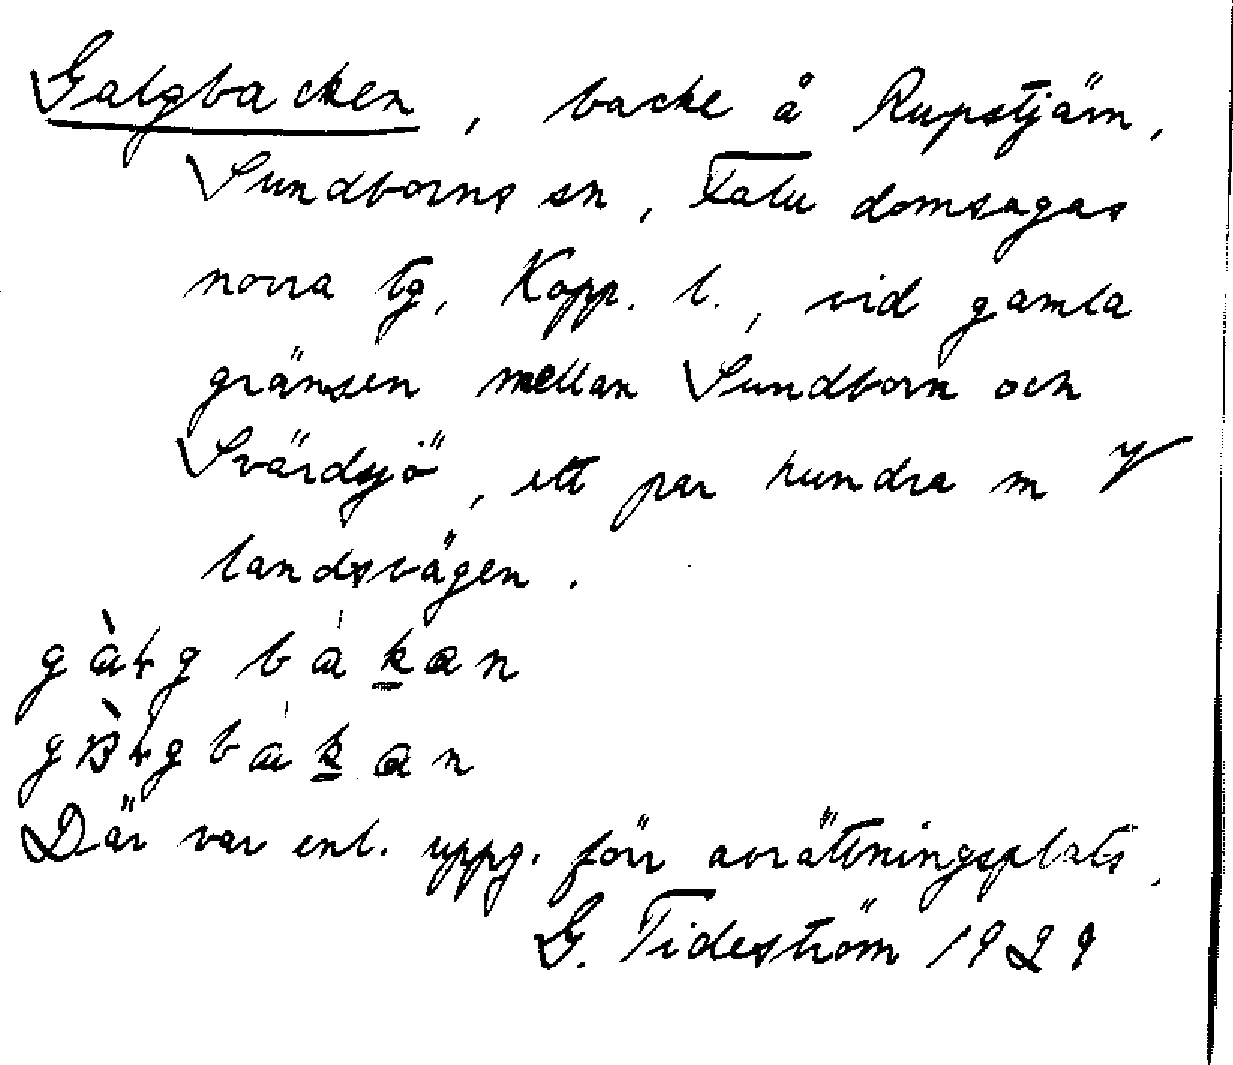 Galgbacken, backe å Rupstjärn,
Sundborns sn, Falu domsagas
norra tg, Kopp. l., vid gamla
gränsen mellan Sundborn och
Svärdsjö, ett par hundra m V
landsvägen.
Där var enl. uppg. förr avrättningsplats.
G. Tideström 1929